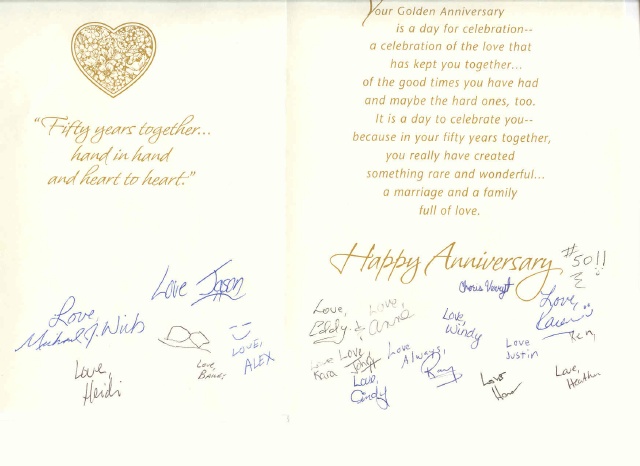 "Fifty years together...
hand in hand
and heart to heart."
Love Jason
Love,
Michael J.
LOVE,
ALEX
Love,
Heidi
Love,
Your Golden Anniversary
is a day for celebration--
a celebration of the love that
has kept you together...
of the good times you have had
and maybe the hard ones, too.
It is a day to celebrate you--
because in your fifty years together,
you really have created
something rare and wonderful...
a marriage and a family
full of love.
Happy Anniversary
#50!!
Love,
Love,
Anna
Love,
Windy
Love,
Karen
Ken
Love
Kara
Love
John
Love
Always,
Love
Justin
Love,
Cindy
Love
Love,
Heather